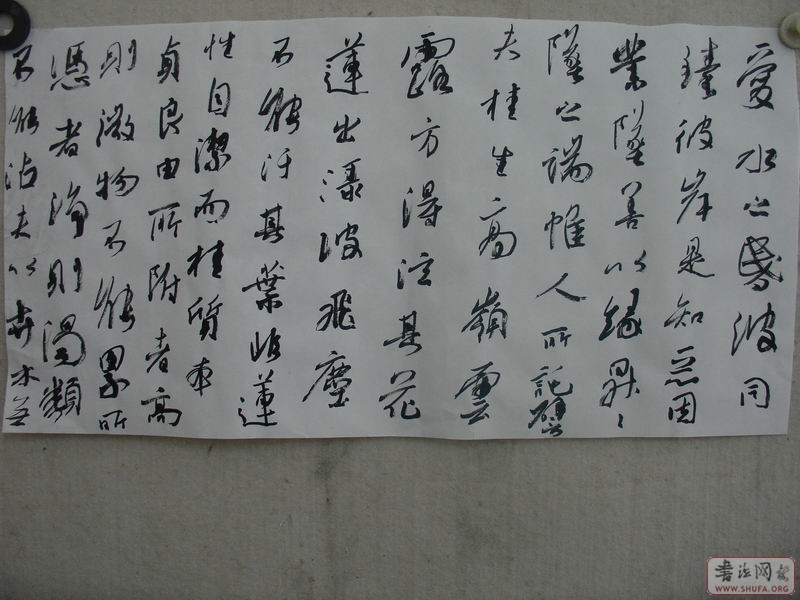 愛水之昬波同
臻彼岸是知惡因
業墜善以緣昇〻
墜之端惟人所託譬
夫桂生高嶺雲
露方得泫其花
蓮出淥波飛塵
不能汙其葉非蓮
性自潔而桂質本
貞良由所附者高
則微物不能累所
憑者淨則濁類
不能沾夫以卉木無
書法网
WWW.SHUFA.ORG